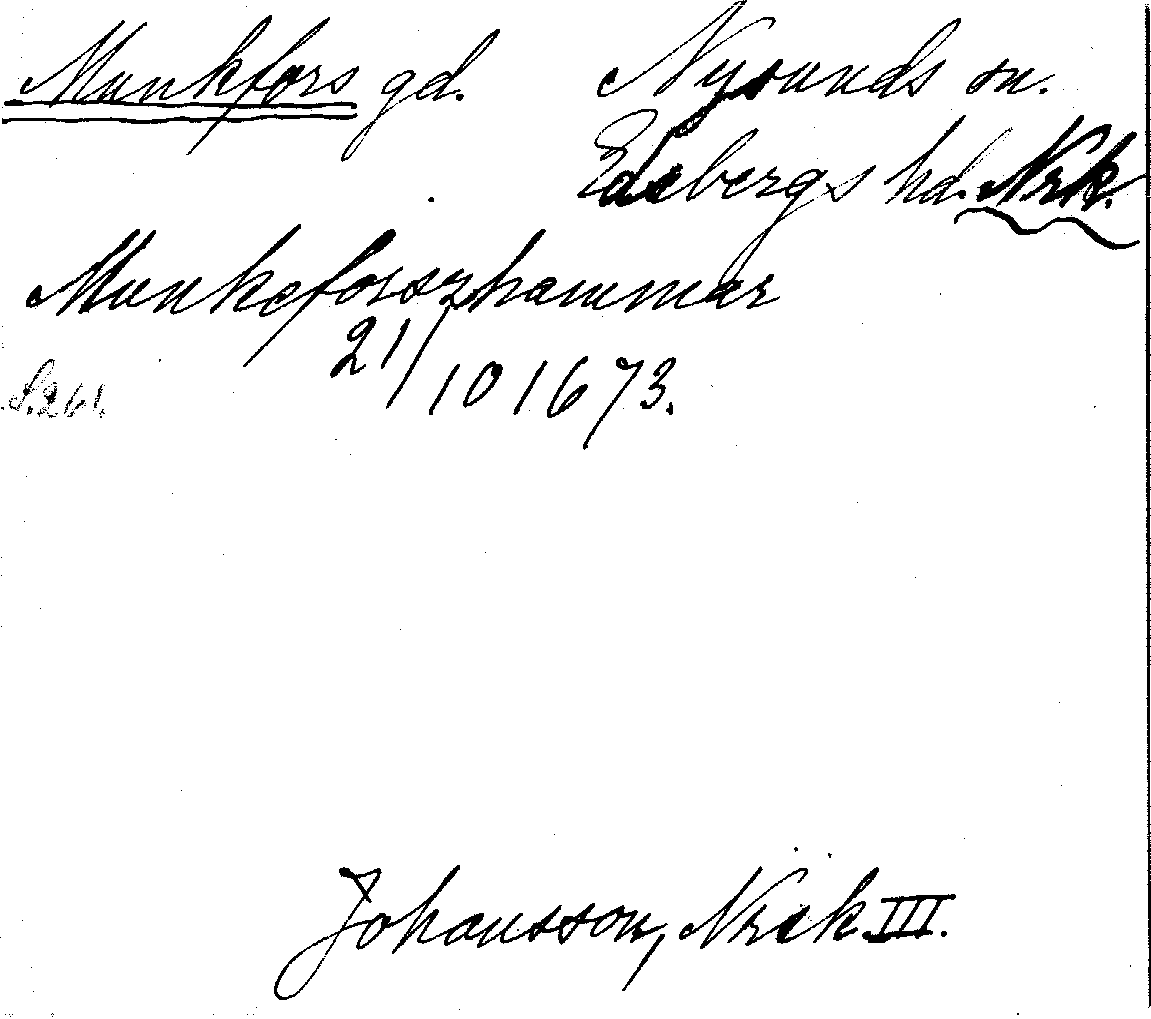 Munkfors gd. Nysunds sn.
Edsbergs hd. Nrk.
Munkeforszhammar
21/10 1673.
S. 261.
Johansson, Närk III.